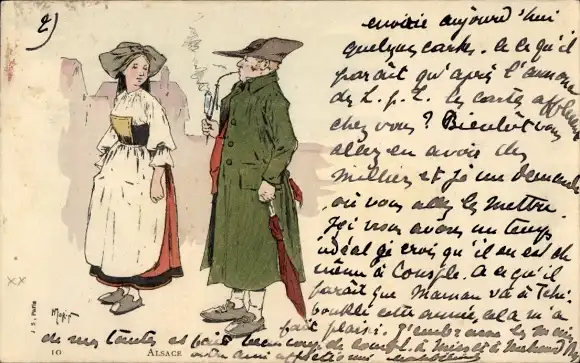 2)
envoie aujourd'hui
quelques cartes. A ce qu'il
paraît qu'après l'annonce
des L. p. L. les cartes affluent
chez vous? Bientôt vous
allez en avoir des
milliers et je me demande
où vous allez les mettre.
Ici nous avons un temps
idéal je crois qu'il en est de
même à A ce qu'il
paraît que Maman va à
cette année, cela m'a
fait plaisir. J'embrasse
de mes tantes et fait beaucoup de
votre ami affectionné
XX
J. S., Paris
10 ALSACE